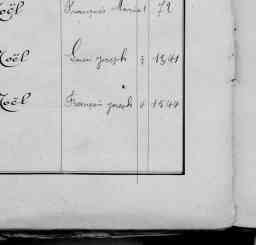 Noël François Marial 72
Noël Louis Joseph 3 1541
Noël François Joseph 4 1544